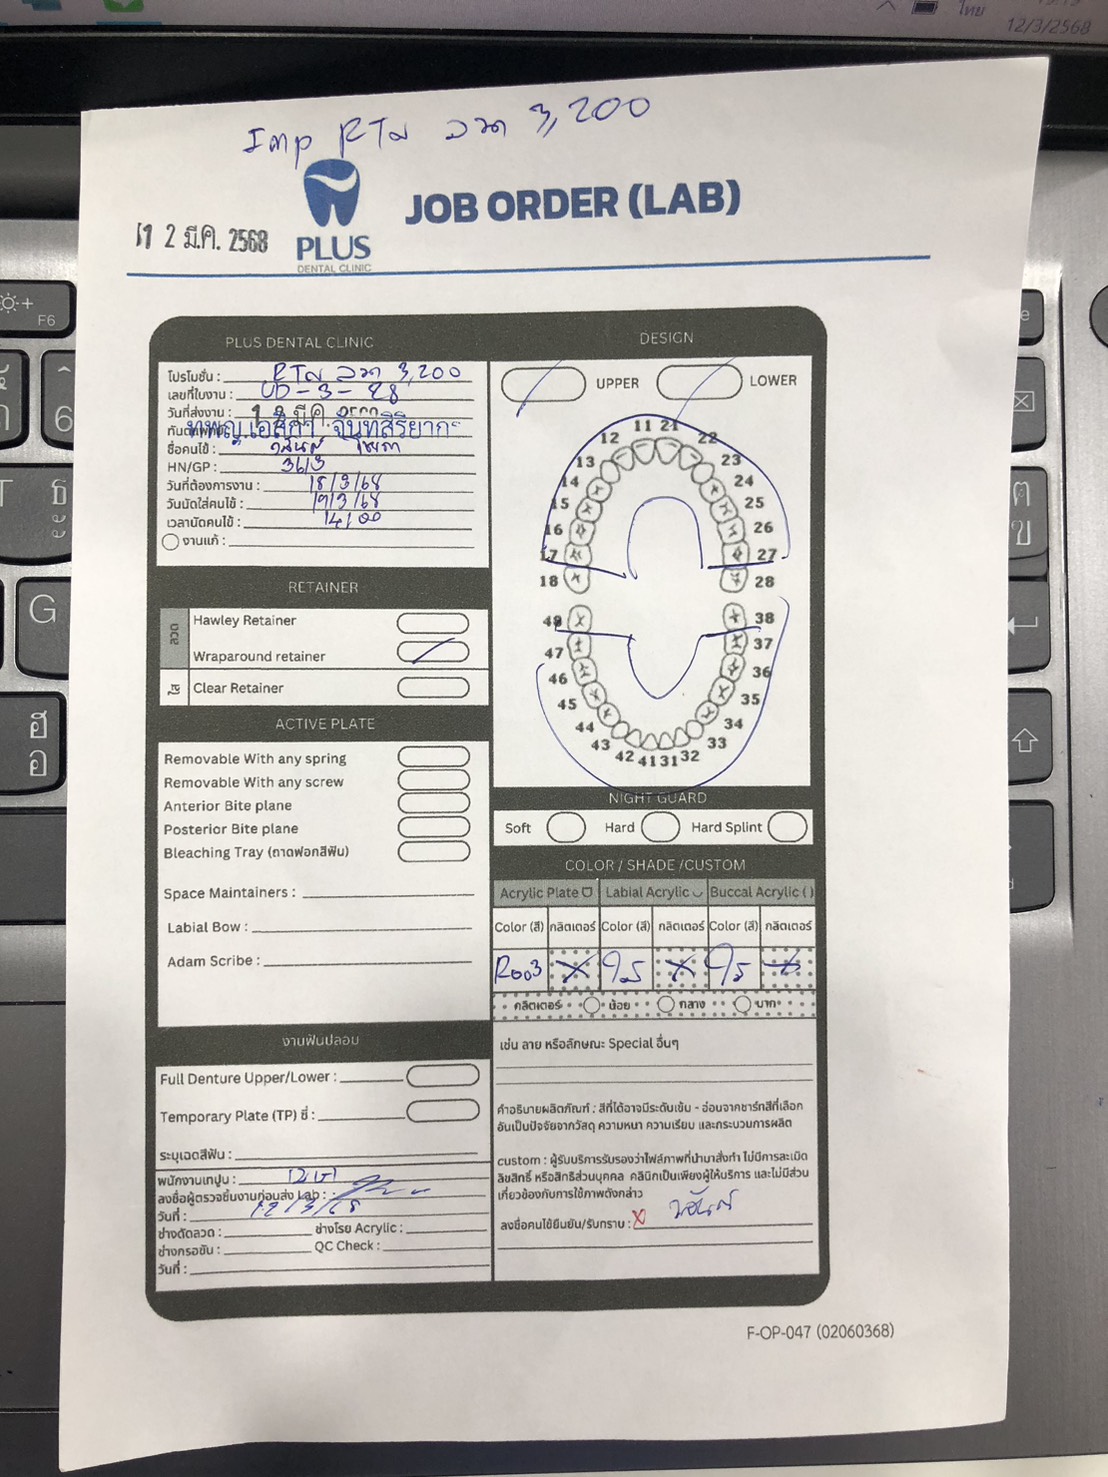 ไทย
12/3/2568
F6
6
G
Imp RTม ลวด 3,200
12 มี.ค. 2568
PLUS
DENTAL CLINIC
JOB ORDER (LAB)
PLUS DENTAL CLINIC
โปรโมชั่น : RTม ลวด 3,200
เลขที่ใบงาน :
วันที่ส่งงาน : 12 มี.ค.
ชื่อคนไข้ :
HN/GP : 3613
วันที่ต้องการงาน : 18/3/68
วันนัดใส่คนไข้ : 19/3/68
เวลานัดคนไข้ : 14:00
งานแก้ :
RETAINER
ลวด
Hawley Retainer
Wraparound retainer
ใส
Clear Retainer
ACTIVE PLATE
Removable With any spring
Removable With any screw
Anterior Bite plane
Posterior Bite plane
Bleaching Tray (ถาดฟอกสีฟัน)
Space Maintainers :
Labial Bow :
Adam Scribe :
งานฟันปลอม
Full Denture Upper/Lower :
Temporary Plate (TP) ซี่ :
ระบุเฉดสีฟัน :
พนักงานเทปูน :
ลงชื่อผู้ตรวจชิ้นงานก่อนส่ง Lab :
วันที่ : 12/3/68
ช่างดัดลวด : ช่างโรย Acrylic :
ช่างกรอขัน : QC Check :
วันที่ :
DESIGN
UPPER LOWER
11 21
12 22
13 23
14 24
15 25
16 26
17 27
18 28
48 38
47 37
46 36
45 35
44 34
43 33
42 41 31 32
NIGHT GUARD
Soft Hard Hard Splint
COLOR / SHADE /CUSTOM
Acrylic Plate Labial Acrylic Buccal Acrylic ( )
Color (สี) กลิตเตอร์ Color (สี) กลิตเตอร์ Color (สี) กลิตเตอร์
R003 X ใส X ใส X
กลิตเตอร์ น้อย กลาง มาก
เช่น ลาย หรือลักษณะ Special อื่นๆ
คำอธิบายผลิตภัณฑ์ : สีที่ได้อาจมีระดับเข้ม - อ่อนจากชาร์ทสีที่เลือก
อันเป็นปัจจัยจากวัสดุ ความหนา ความเรียบ และกระบวนการผลิต
custom : ผู้รับบริการรับรองว่าไฟล์ภาพที่นำมาสั่งทำ ไม่มีการละเมิด
ลิขสิทธิ์ หรือสิทธิส่วนบุคคล คลินิกเป็นเพียงผู้ให้บริการ และไม่มีส่วน
เกี่ยวข้องกับการใช้ภาพดังกล่าว
ลงชื่อคนไข้ยืนยัน/รับทราบ : X
F-OP-047 (02060368)